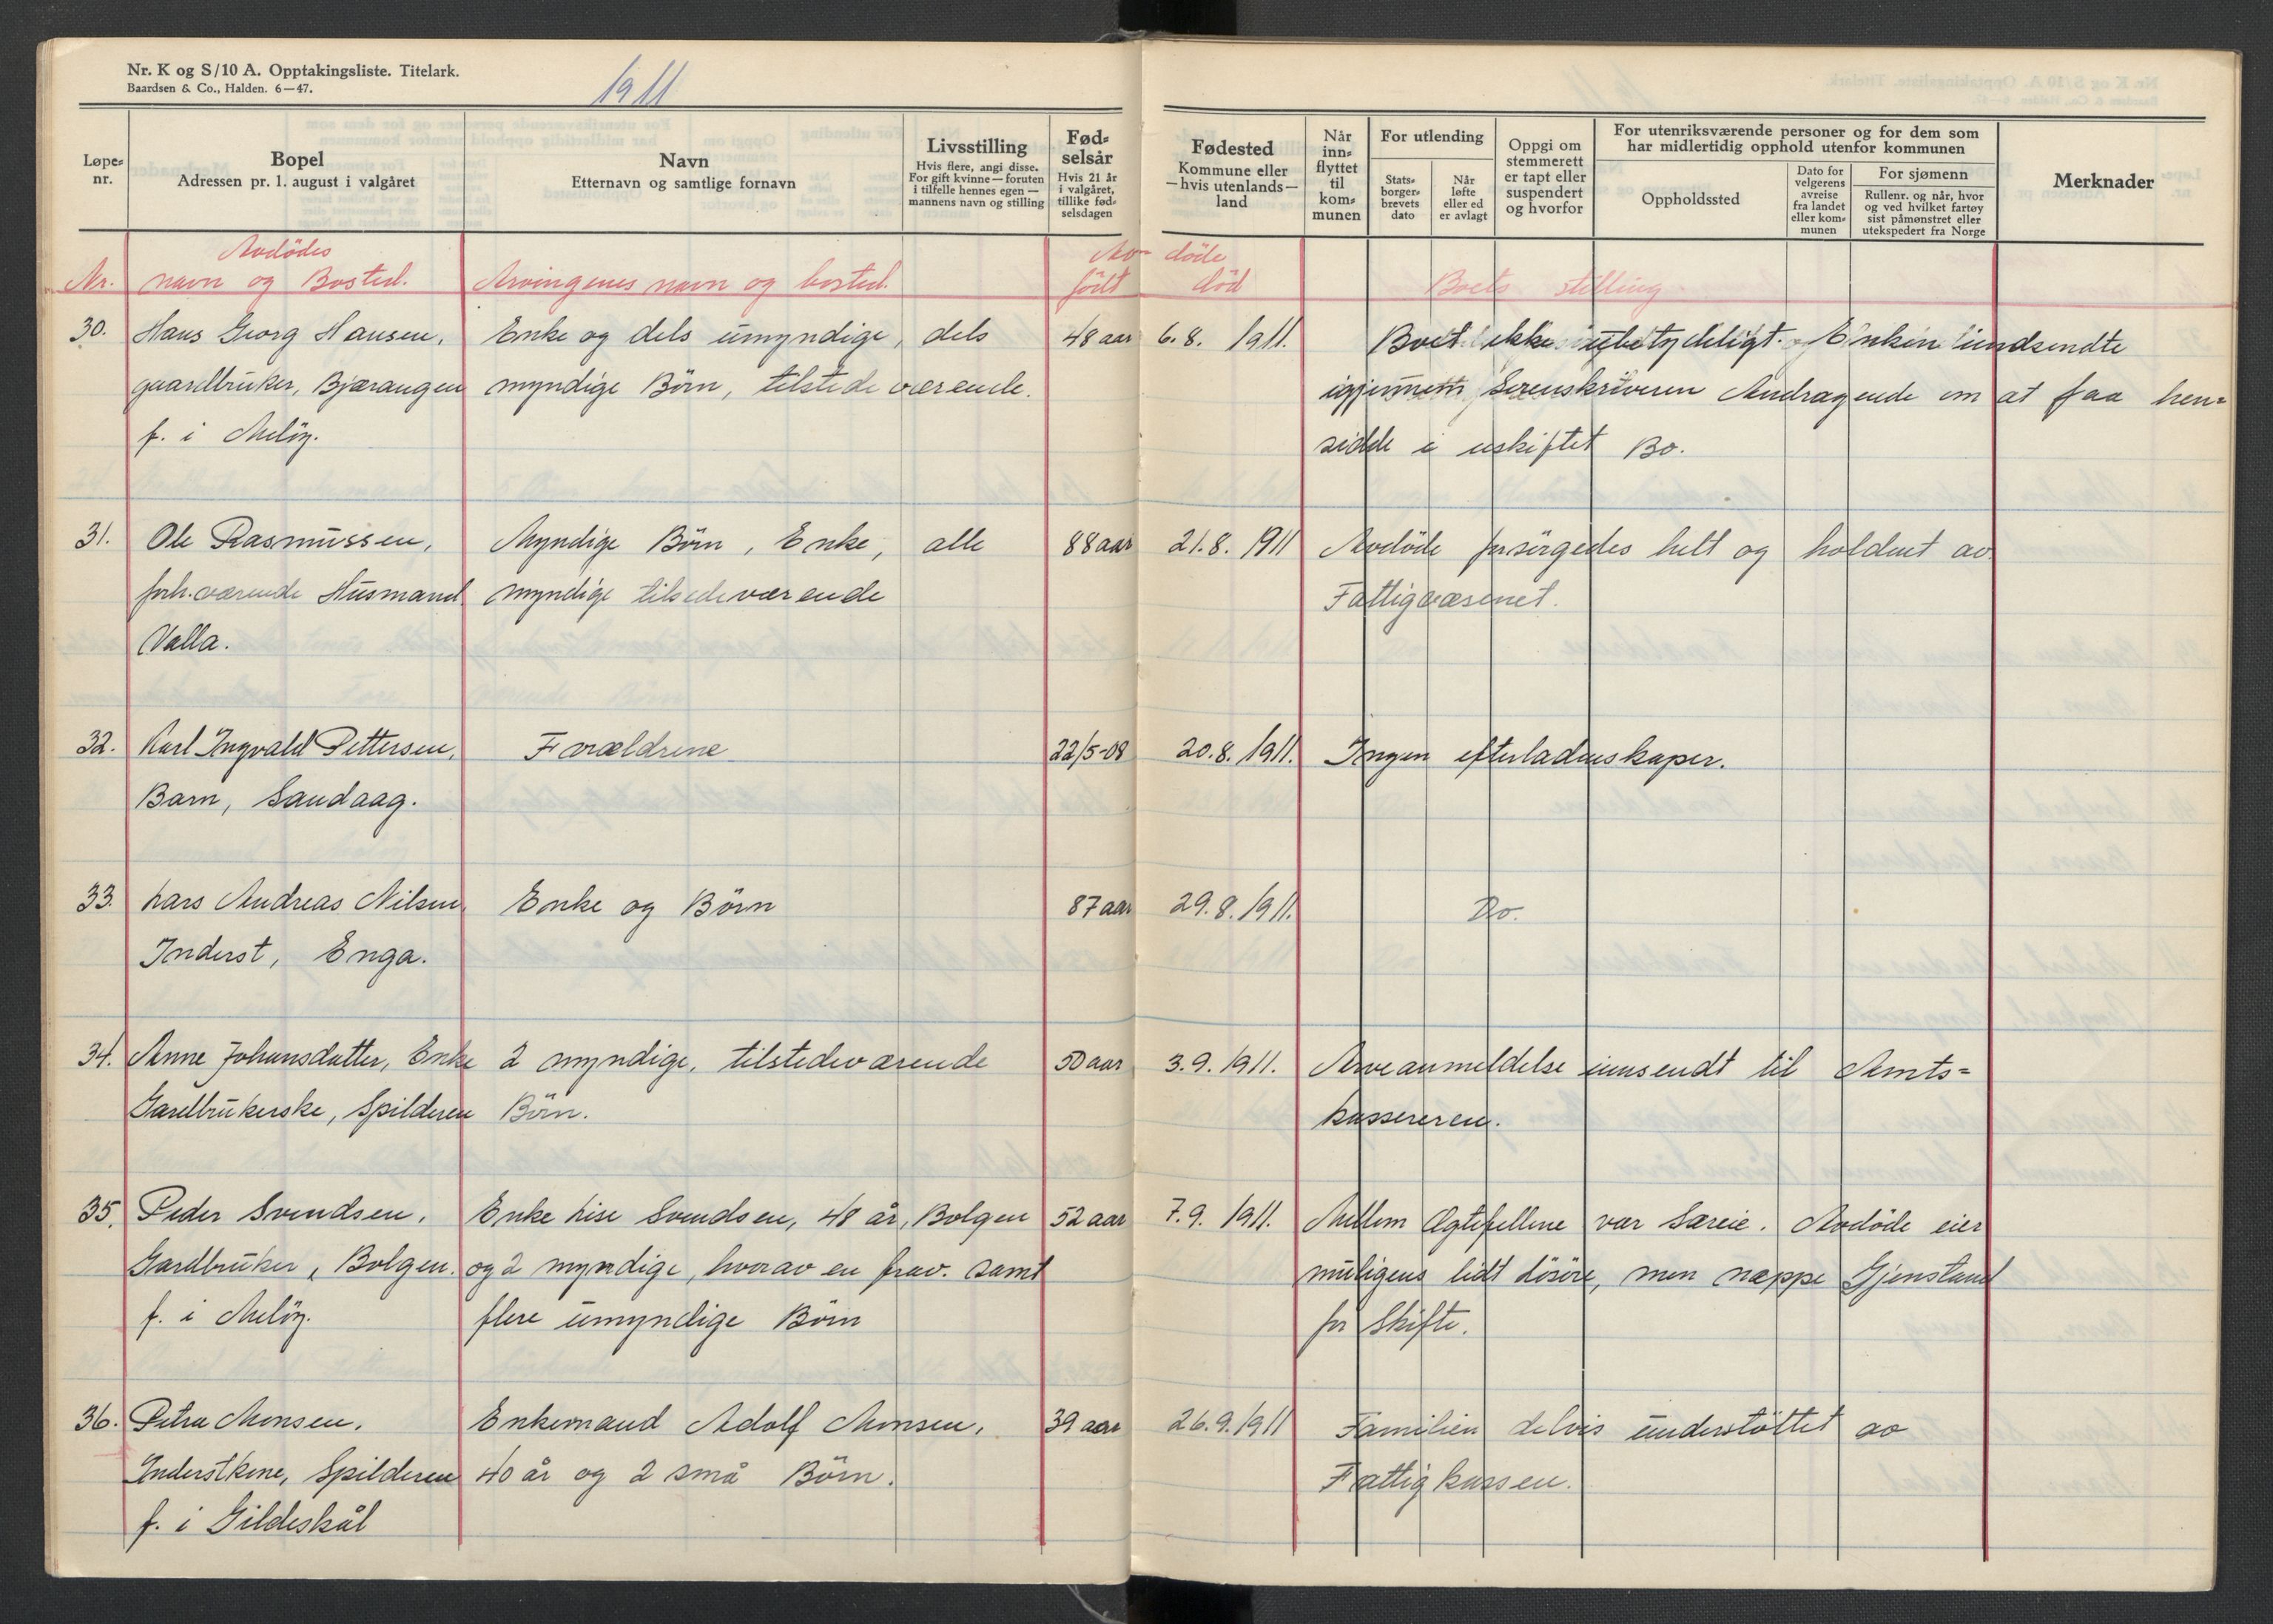 Nr. K og S/10 A. Opptakingsliste. Titelark.
Baardsen & Co., Halden. 6—47.
1911
Løpe-nr.
Bopel
Adressen pr. 1. august i valgåret
Navn
Etternavn og samtlige fornavn
Livsstilling
Hvis flere, angi disse.
For gift kvinne — foruten
i tilfelle hennes egen —
mannens navn og stilling
Fød-
selsår
Hvis 21 år
i valgåret,
tillike fød-
selsdagen
Fødested
Kommune eller
—hvis utenlands—
land
Når
inn-
flyttet
til
kom-
munen
For utlending
Stats-
borger-
brevets
dato
Når
løfte
eller ed
er avlagt
Oppgi om
stemmerett
er tapt eller
suspendert
og hvorfor
For utenriksværende personer og for dem som
har midlertidig opphold utenfor kommunen
Oppholdssted
Dato for
velgerens
avreise
fra landet
eller kom-
munen
For sjømenn
Rullenr. og når, hvor
og ved hvilket fartøy
sist påmønstret eller
utekspedert fra Norge
Merknader
Avdödes Av döde
Nr. navn og Bosted. Arvingenes navn og bosted. födt död Boets stilling
30. Hans Georg Hansen, Enke og dels umyndige, dels 48 aar 6.8. 1911. Boet ikke ubetydeligt. Enken indsendte
gaardbruker, Bjærangen myndige Börn, tilstedeværende. igjennem Sorenskriveren Andragende om at faa hen-
f. i Melöy. sidde i uskiftet Bo.
31. Ole Rasmussen, Myndige Börn, Enke, alle 88 aar 21.8. 1911 Avdöde forsörgedes helt og holdent av
forh. værende Husmand myndige tilsedeværende Fattigvæsenet.
Valla.
32. Karl Ingvald Pettersen, Forældrene 22/5-08 20.8. 1911. Ingen efterladenskaper.
Barn, Sandaag.
33. Lars Andreas Nilsen Enke og Börn 87 aar 29.8. 1911. Do.
Inderst, Enga.
34. Anne Johansdatter, Enke 2 myndige, tilstedeværende 50 aar 3.9. 1911. Arveanmeldelse innsendt til Amts-
Gardbrukerske, Spilderen Börn. kassereren.
35. Peder Svendsen, Enke Lise Svendsen, 48 år, Bolgen 52 aar 7.9. 1911. Mellem Ægtefellene var Særeie. Avdöde eier
Gardbruker, Bolgen. og 2 myndige, hvorav en frav. samt muligens lidt lösöre, men neppe Gjenstand
f. i Melöy. flere umyndige Börn for Skifte.
36. Petra Monsen, Enkemand Adolf Monsen, 39 aar 26.9. 1911 Familien delvis understöttet av
Inderstkone, Spilderen 40 år og 2 små Börn. Fattigkassen.
f. i Gildeskål